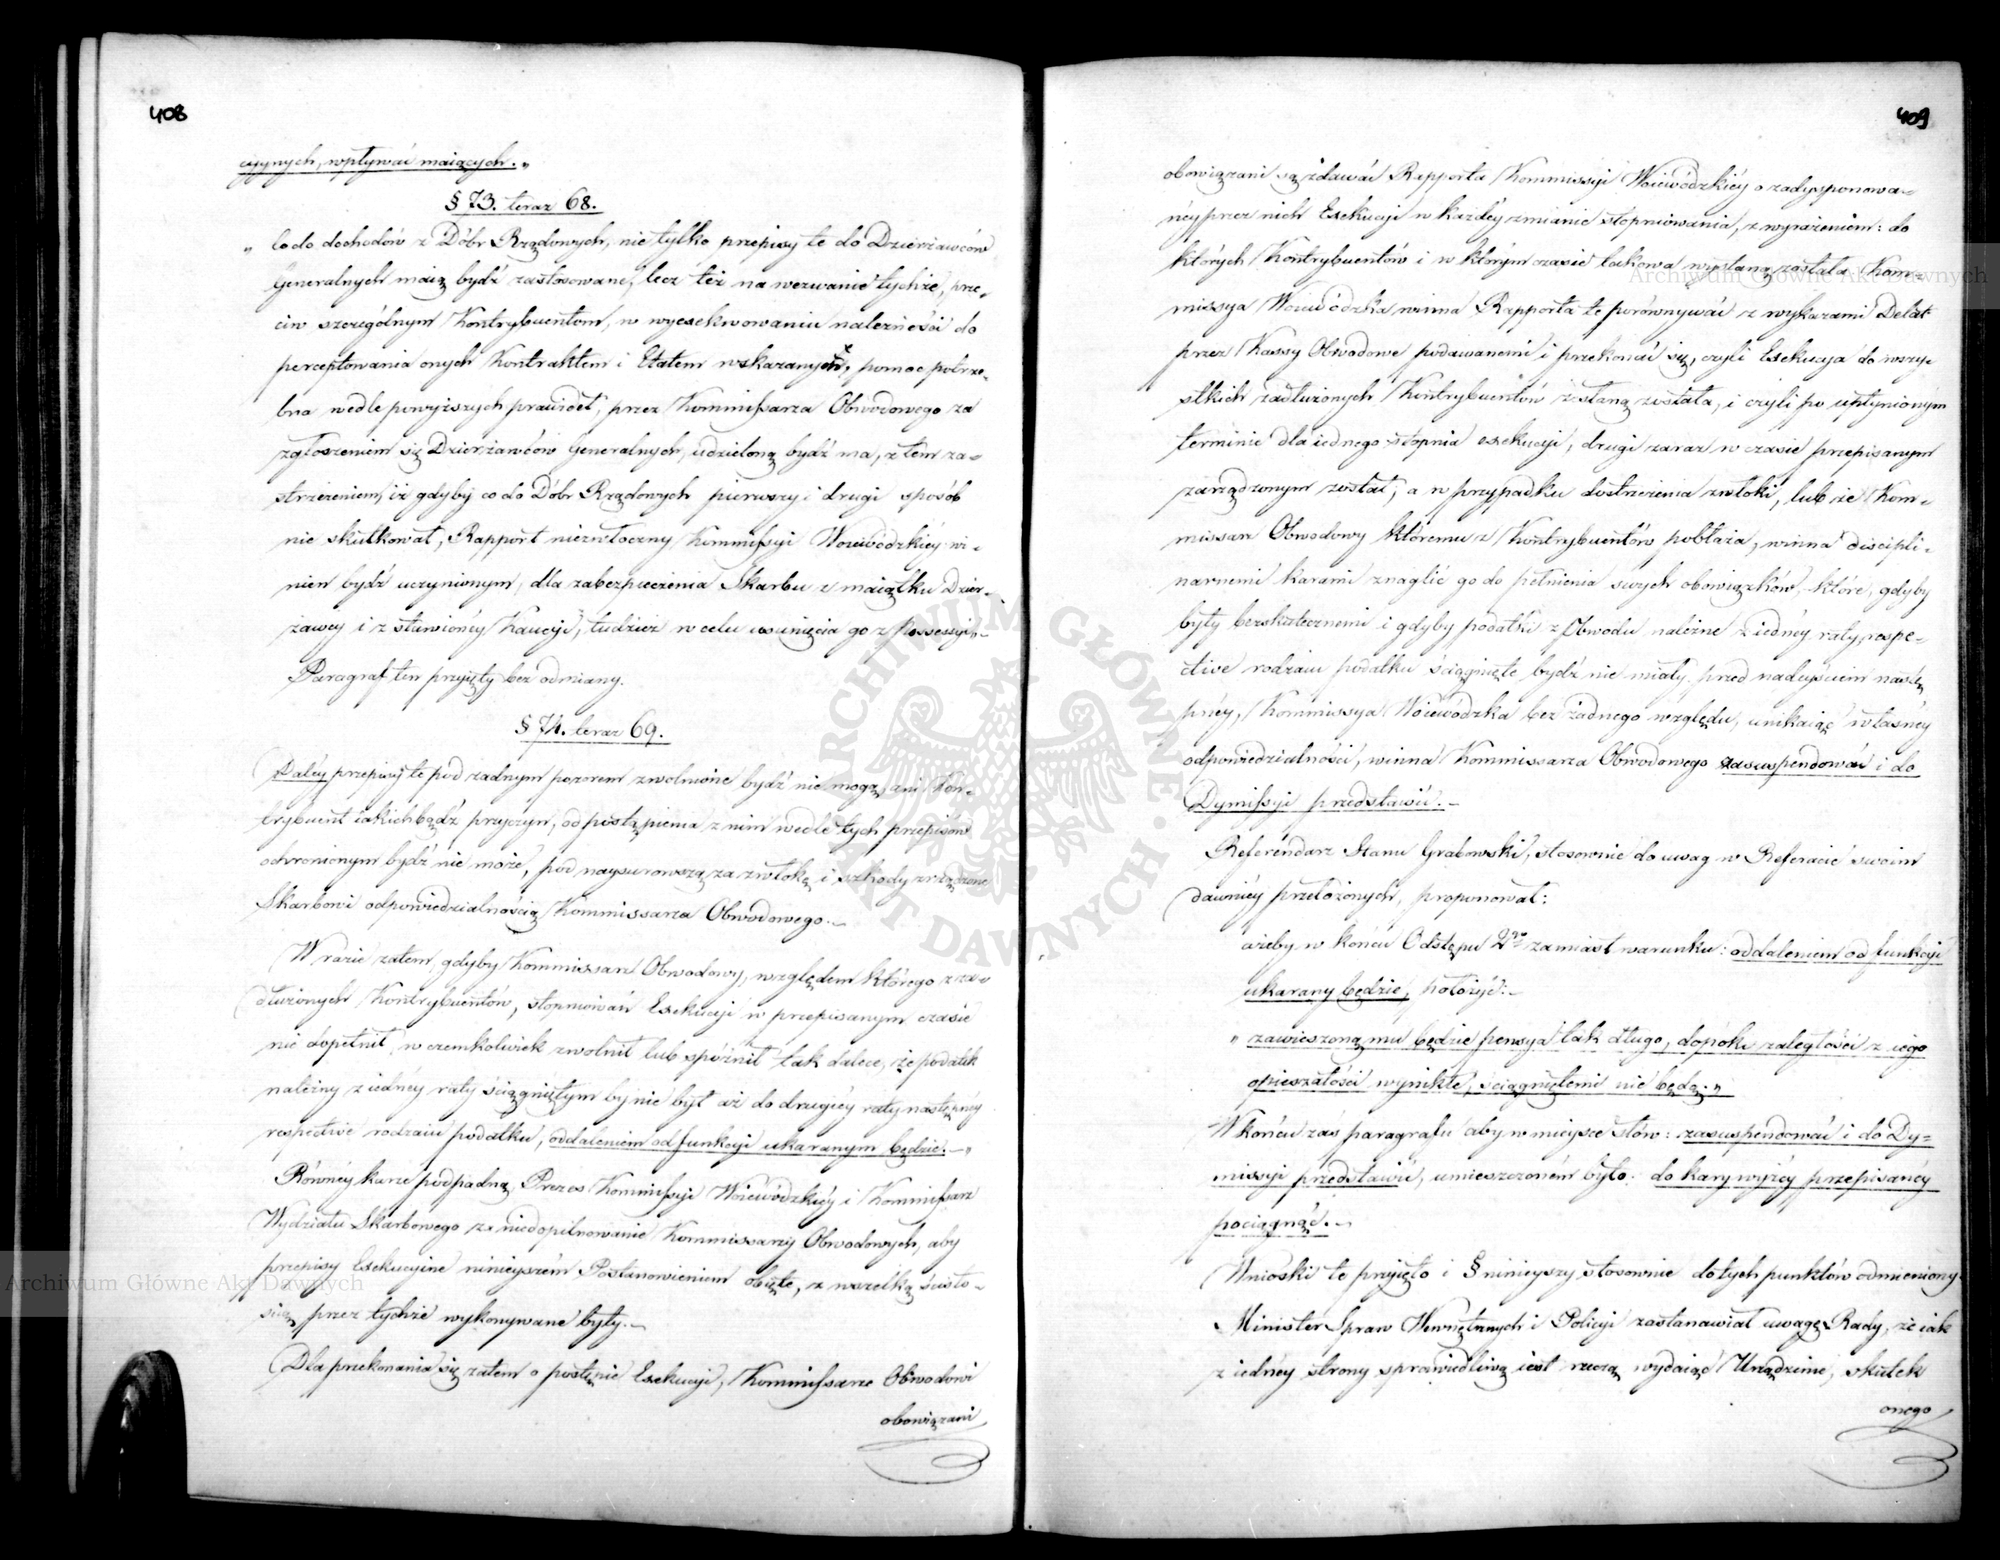 408
cyjnych, wpływać maiących.„
§ 73. teraz 68.
„ Co do dochodów z Dóbr Rządowych, nie tylko przepisy te do Dzierżawców
Generalnych maią bydź zastosowane, lecz też na wezwanie tychże, prze-
ciw szczególnym Kontrybuentom, w wyexekwowaniu należności do
perceptowania onych Kontraktem i Etatem wskazanych, pomoc potrze-
bna wedle powyższych prawideł, przez Kommissarza Obwodowego za
zgłoszeniem się Dzierżawców Generalnych, udzieloną bydź ma, z tem za-
strzeżeniem, iż gdyby co do Dóbr Rządowych pierwszy i drugi sposób
nie skutkował, Rapport niezwłoczny Kommissyi Woiewódzkiéy wi-
nien bydź uczynionym, dla zabezpieczenia Skarbu z maiątku Dzier-
żawcy i z stawionéy Kaucyi, tudzież w celu usunięcia go z possessyi„-
Paragraf ten przyięty bez odmiany.
§ 74. teraz 69.
Daléy przepisy te pod żadnym pozorem zwolnione bydź nie mogą, ani Kon-
trybuent iakichbądź przyczyn, od postąpienia z nim wedle tych przepisów
ochronionym bydź nie może, pod naysurowszą za zwłokę i szkody zrządzone
Skarbowi odpowiedzialnością Kommissarza Obwodowego.-
W razie zatem, gdyby Kommissarz Obwodowy, względem którego z za-
dłużonych Kontrybuentów, stopniowań Exekucyi w przepisanym czasie
nie dopełnił, w czemkolwiek zwolnił lub spóźnił tak dalece, że podatek
należny z iednéy raty ściągniętym by nie był aż do drugiéy raty następnéy
respective rodzaiu podatku, oddaleniem od funkcyi ukaranym będzie.-„
Równéy karze podpadną Prezes Kommissyi Woiewódzkiéy i Kommissarz
Wydziału Skarbowego za niedopilnowanie Kommissarzy Obwodowych, aby
przepisy Exekucyine ninieyszém Postanowieniem obięte, z wszelką ścisło-
ścią przez tychże wykonywane były.-
Dla przekonania się zatem o postępie Exekucyi, Kommissarze Obwodowi
obowiązani
409
obowiązani są zdawać Rapporta Kommissyi Woiewódzkiéy o zadysponowa-
néy przez nich Exekucyi w każdéy zmianie stopniowania, z wyrażeniem: do
których Kontrybuentów i w którym czasie takowa wysłaną została. Kom-
missya Woiewódzka winna Rapporta te porównywać z wykazami Delat
przez Kassy Obwodowe podawanemi i przekonać się, czyli Exekucya do wszy-
stkich zadłużonych Kontrybuentów zesłaną została, i czyli po upłynionym
terminie dla iednego stopnia exekucyi, drugi zaraz w czasie przepisanym
zarządzonym został, a w przypadku dostrzeżenia zwłoki, lub że Kom-
missarz Obwodowy któremu z Kontrybuentów pobłaża, winna discipli-
narnemi karami znaglić go do pełnienia swych obowiązków, które, gdyby
były bezskutecznemi i gdyby podatki z Obwodu należne z iednéy raty, respe-
ctive rodzaiu podatku ściągnięte bydź nie miały przed nadeyściem nastę-
pnéy, Kommissya Woiewódzka bez żadnego względu, unikaiąc własnéy
odpowiedzialności, winna Kommissarza Obwodowego zasuspendować i do
Dymissyi przedstawić.-
Referéndarz Stanu Grabowski, stosownie do uwag w Referacie swoim
dawniéy przełożonych, proponował:
ażeby w końcu Odstępu 2go zamiast warunku: oddaleniem od funkcyi
ukarany będzie, położyć:-
„ zawieszoną mu będzie pensya tak długo, dopóki zaległości z iego
opieszałości wynikłe, ściągniętemi nie będą.„
W końcu zaś paragrafu aby w mieysce słów: zasuspendować i do Dy-
missyi przedstawić, umieszczoném było: do kary wyżéy przepisanéy
pociągnąć.-
Wnioski te przyięto i § ninieyszy stosownie do tych punktów odmieniony.
Minister Spraw Wewnętrznych i Policyi zastanawiał uwagę Rady, że iak
z iednéy strony sprawiedliwą iest rzeczą wydaiąc Urządzenie, skutek
onego